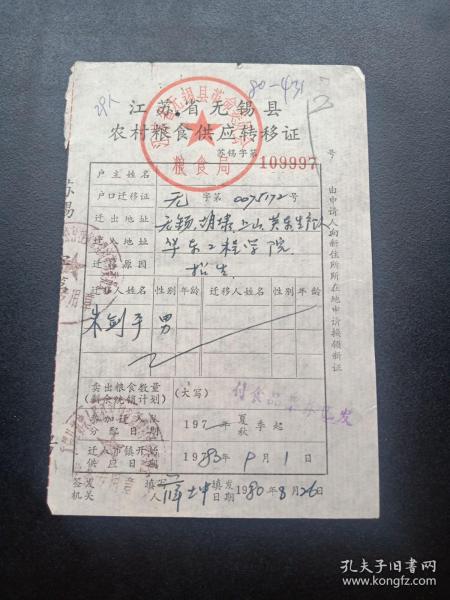 80-431
江苏省无锡县
农村粮食供应转移证
苏锡字第109997号
粮食局
户主姓名
户口迁移证 无字第0075172号
迁出地址 无锡
迁入地址 华东工程学院
迁移原因 招生
迁移人姓名 性别 年龄 迁移人姓名 性别 年龄
朱剑平 男
卖出粮食数量
(剩余统销计划) (大写)
参加迁入队
分配日期 197 年 夏秋 季起
迁入市镇开始
供应日期 1980年9月1日
签发机关 填写人 蒋士坤 填发日期 1980年8月26日
由申请人向新住所所在地申请换领新证
孔夫子旧书网
kongfz.com